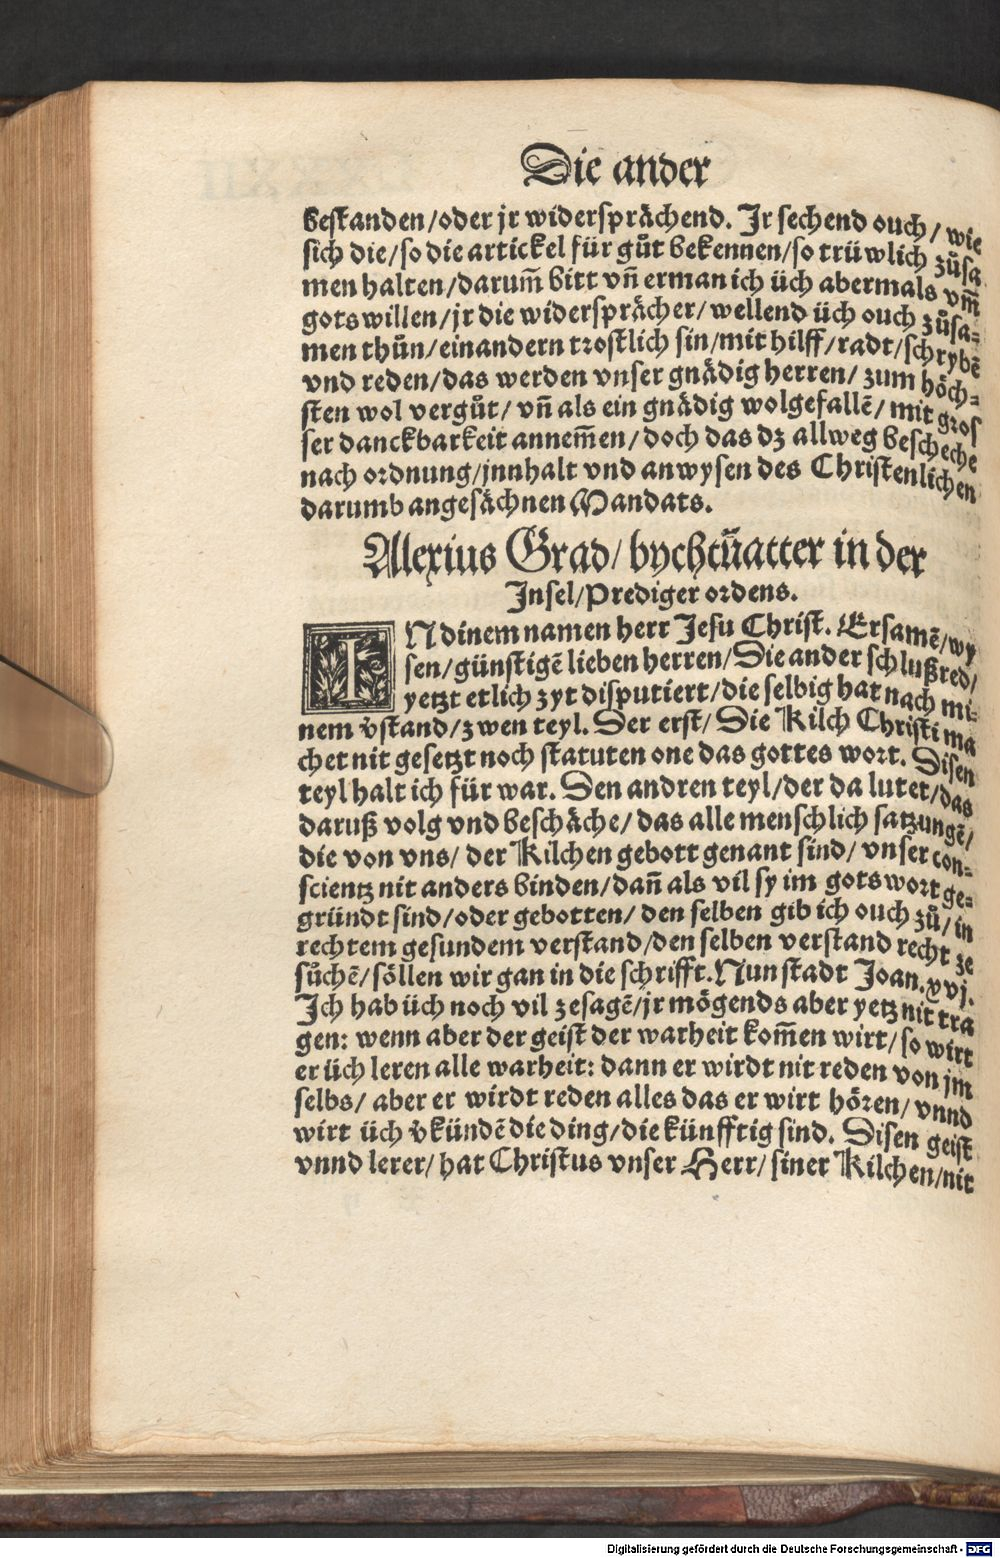 Die ander
bestanden/oder jr widersprächend. Jr sechend ouch/ wie
sich die/so die artickel für gůt bekennen/so trüwlich zůsa
men halten/darum̃ bitt vñ erman ich üch abermals vm̃
gotswillen/jr die widersprächer/wellend üch ouch zůsa⸗
men thůn/einandern trostlich sin/mit hilff/radt/schrybẽ
vnd reden/das werden vnser gnädig herren/ zum höch⸗
sten wol vergůt/ vñ als ein gnädig wolgefallẽ/ mit gros
ser danckbarkeit annem̃en/ doch das dz allweg bescheche
nach ordnung/jnnhalt vnd anwysen des Christenlichen
darumb angesächnen Mandats.
Alexius Grad/ bychtũatter in der
Insel/Prediger ordens.
IN dinem namen herr Jesu Christ. Ersamẽ/wy
sen/günstigẽ lieben herren/Die ander schlußred/
yetzt etlich zyt disputiert/die selbig hat nach mi⸗
nem v̄stand/zwen teyl. Der erst/ Die Kilch Christi ma
chet nit gesetzt noch statuten one das gottes wort. Disen
teyl halt ich für war. Den andren teyl/der da lutet/das
daruß volg vnd beschäche/ das alle menschlich satzungẽ/
die von vns/ der Kilchen gebott genant sind/ vnser con⸗
scientz nit anders binden/dañ als vil sy im gotswort ge⸗
gründt sind/oder gebotten/ den selben gib ich ouch zů/in
rechtem gesundem verstand/den selben verstand recht ze
sůchẽ/söllen wir gan in die schrifft. Nun stadt Joan.xvj.
Ich hab üch noch vil zesagẽ/jr mögends aber yetz nit tra
gen: wenn aber der geist der warheit kom̃en wirt/ so wirt
er üch leren alle warheit: dann er wirdt nit reden von jm
selbs/ aber er wirdt reden alles das er wirt hören/ vnnd
wirt üch v̄kündẽ die ding/die künfftig sind. Disen geist
vnnd lerer/ hat Christus vnser Herr/ siner Kilchen/nit
Digitalisierung gefördert durch die Deutsche Forschungsgemeinschaft - DFG